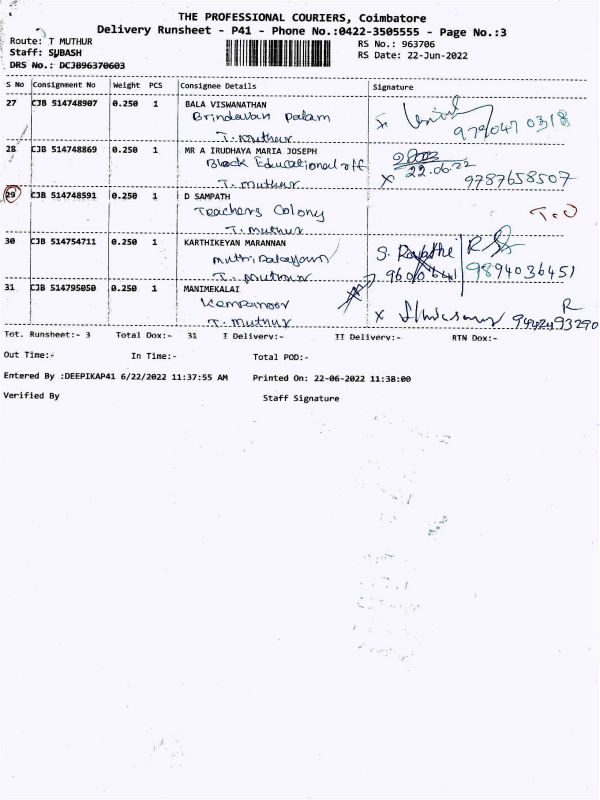 THE PROFESSIONAL COURIERS, Coimbatore
Delivery Runsheet - P41 - Phone No.:0422-3505555 - Page No.:3
Route: T MUTHUR
RS No.: 963706
Staff: SUBASH
RS Date: 22-Jun-2022
DRS No.: DCJB96370603
S No Consignment No Weight PCS Consignee Details Signature
27 CJB 514748907 0.250 1 BALA VISWANATHAN
Brindavan Palam
T. Muthur
979047 0318
28 CJB 514748869 0.250 1 MR A IRUDHAYA MARIA JOSEPH
Block Educational off
T. Muthur
22.06.22
X 9787658507
29 CJB 514748591 0.250 1 D SAMPATH
Teachers Colony
T. Muthur
T.O
30 CJB 514754711 0.250 1 KARTHIKEYAN MARANNAN
T. Muthur
S.
9894036451
31 CJB 514795050 0.250 1 MANIMEKALAI
T. Muthur
X R
Tot. Runsheet:- 3 Total Dox:- 31 I Delivery:- II Delivery:- RTN Dox:-
Out Time:- In Time:- Total POD:-
Entered By :DEEPIKAP41 6/22/2022 11:37:55 AM Printed On: 22-06-2022 11:38:00
Verified By Staff Signature